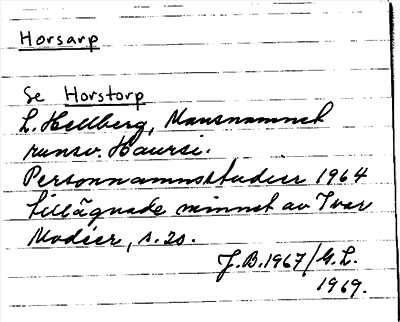 Horsarp
Se Horstorp
L. Hellberg, Mansnamnet
runsv. Haursi.
Personnamnsstudier 1964
tillägnade minnet av Ivar
Modéer, s. 20.
J.B. 1967/G.L.
1969.